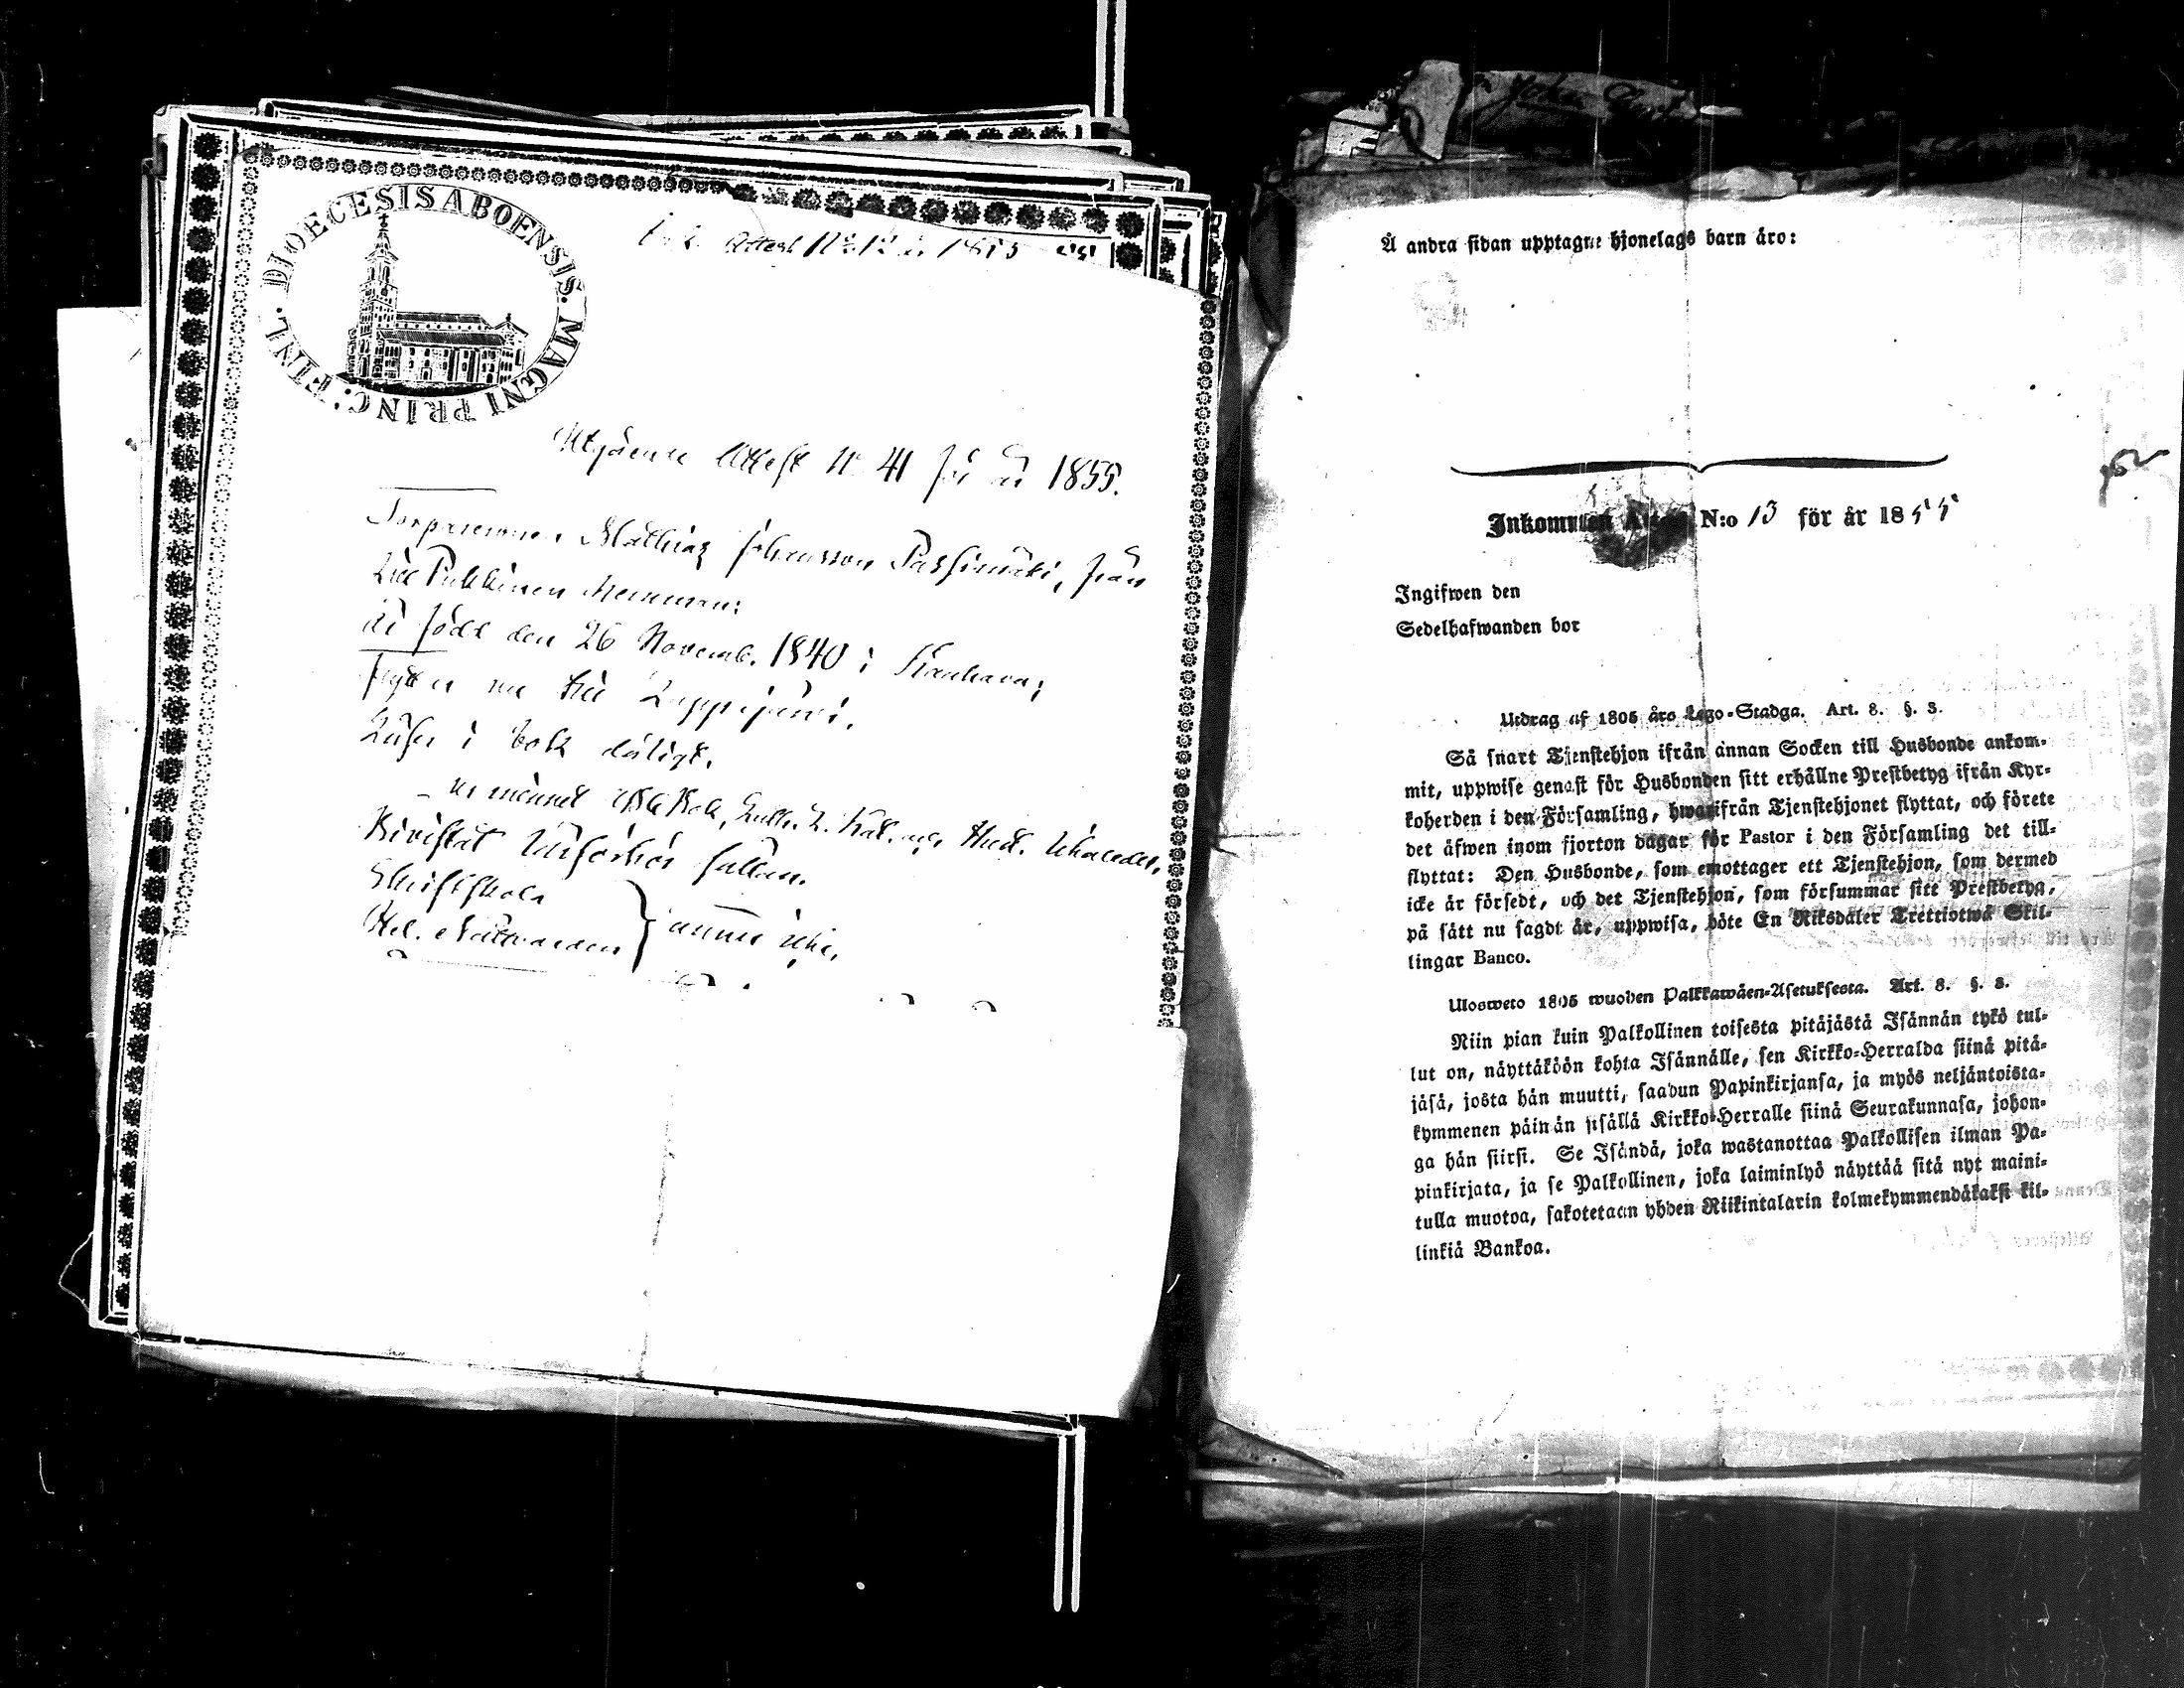 DIOECESIS ABOENSIS. MAGNI PRINC: FINL.
Attest N:o 12 1855
Utgående Attest N:o 41 för år 1855.
Mathias Johansson Passimäki, från
Lill Pukkinen hemman;
är född den 26 Novemb. 1840 i Kauhava;
flyttar nu till Lappajärvi.
Läser i bok dåligt,
Skriftskola
H. Nattvarden } ännu icke.
Å andra sidan upptagne hjonelags barn äro:
Inkommen Attest N:o 13 för år 1855
Ingifwen den
Sedelhafwanden bor
Utdrag af 1805 års Lego-Stadga. Art. 8. §. 3.
Så snart Tjenstehjon ifrån annan Socken till Husbonde ankom-
mit, uppwise genast för Husbonden sitt erhållne Prestbetyg ifrån Kyr-
koherden i den Församling, hwarifrån Tjenstehjonet flyttat, och förete
det äfwen inom fjorton dagar för Pastor i den Församling det till-
flyttat: Den Husbonde, som emottager ett Tjenstehjon, som dermed
icke är försedt, och det Tjenstehjon, som försummar sitt Prestbetyg,
på sätt nu sagdt är, uppwisa, böte En Riksdaler Trettiotwå Skil-
lingar Banco.
Ulosweto 1805 wuoden Palkkawäen-Asetuksesta. Art. 8. §. 3.
Niin pian kuin Palkollinen toisesta pitäjästä Isännän tykö tul-
lut on, näyttäköön kohta Isännälle, sen Kirkko-Herralda siinä pitä-
jäsä, josta hän muutti, saadun Papinkirjansa, ja myös neljäntoista-
kymmenen päiwän sisällä Kirkko-Herralle siinä Seurakunnasa, johon-
ga hän siirsi. Se Isändä, joka wastanottaa Palkollisen ilman Pa-
pinkirjata, ja se Palkollinen, joka laiminlyö näyttää sitä nyt maini-
tulla muotoa, sakotetaan yhden Riikintalarin kolmekymmendäkaksi kil-
linkiä Bankoa.